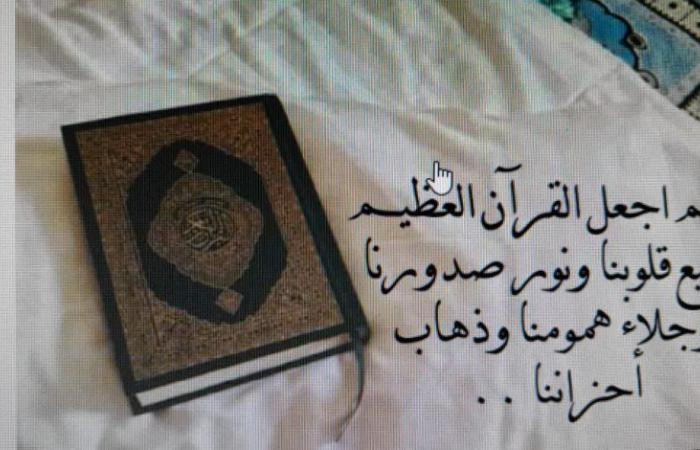 م اجعل القرآن العظيم
يع قلوبنا ونور صدورنا
وجلاء همومنا وذهاب
أحزاننا . .